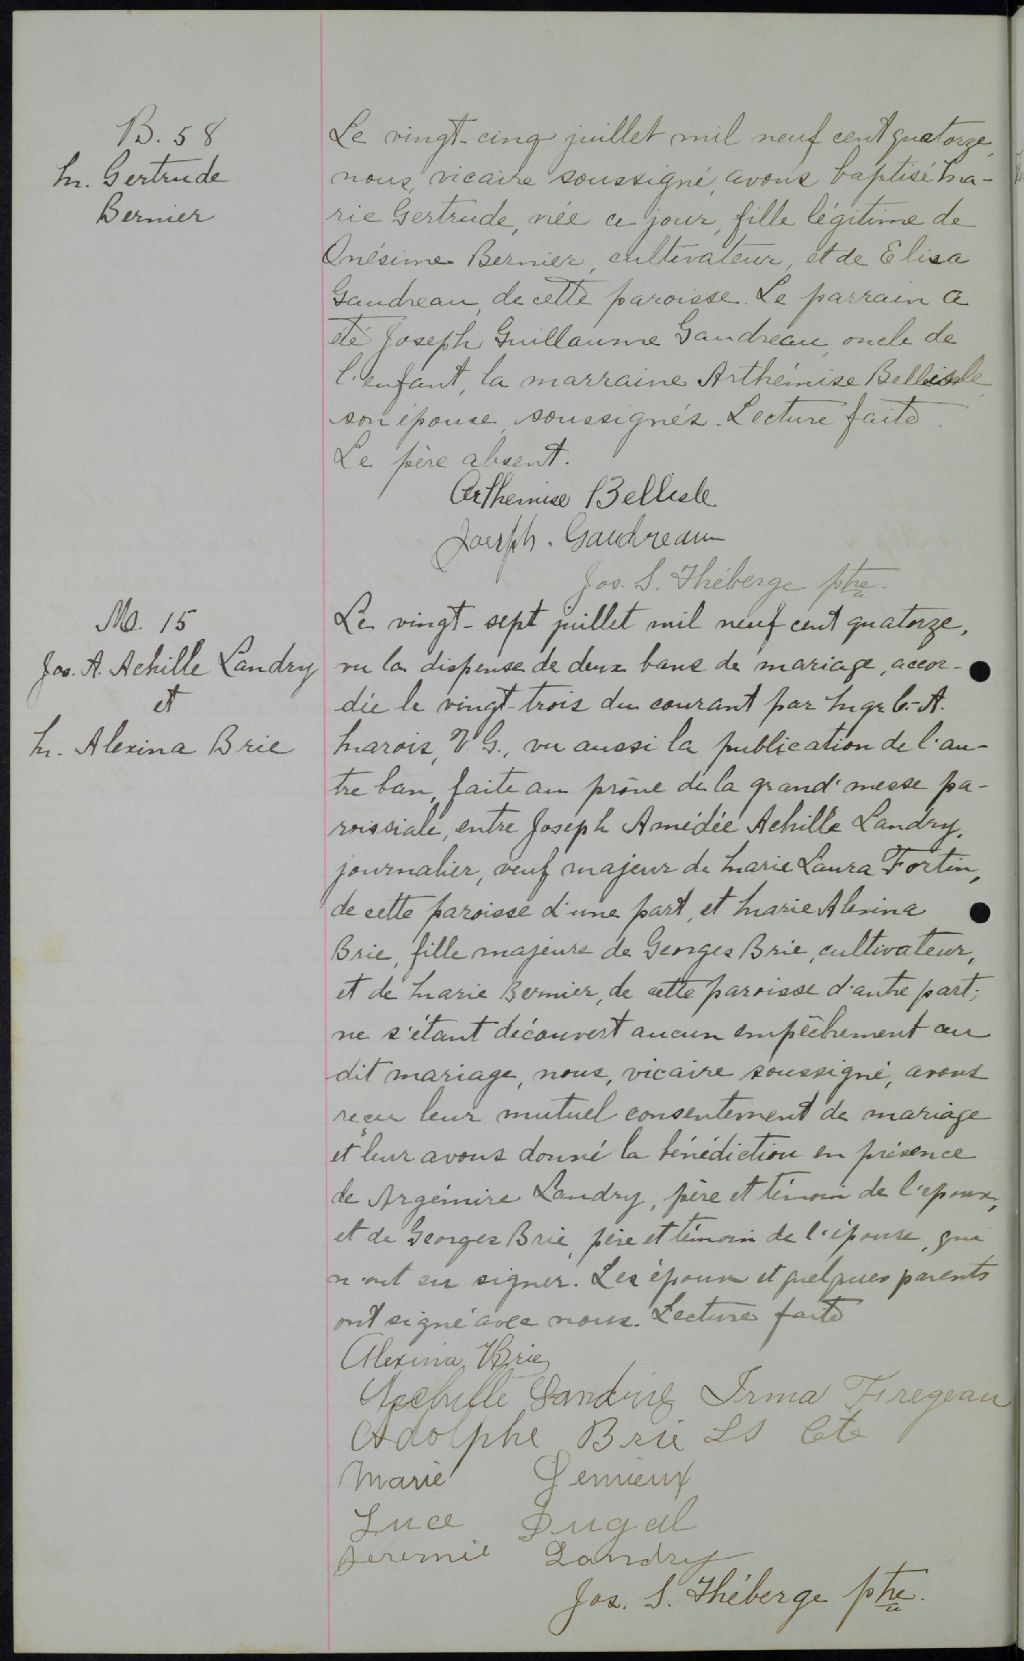 B. 58
M. Gertrude
Bernier
Le vingt-cinq juillet mil neuf cent quatorze,
nous, vicaire soussigné, avons baptisé Ma-
rie Gertrude, née ce jour, fille légitime de
Onésime Bernier, cultivateur, et de Elisa
Gaudreau, de cette paroisse. Le parrain a
été Joseph Guillaume Gaudreau, oncle de
l'enfant, la marraine Arthémise Bellisle,
son épouse, soussignés. Lecture faite.
Le père absent.
Arthemise Bellisle
Joseph. Gaudreau
Jos. S. Théberge ptre.
M. 15
Jos. A. Achille Landry
et
M. Alexina Brie
Le vingt-sept juillet mil neuf cent quatorze,
vu la dispense de deux bans de mariage, accor-
dée le vingt-trois du courant par Mgr C.-A.
Marois, V.G., vu aussi la publication de l'au-
tre ban, faite au prône de la grand'messe pa-
roissiale, entre Joseph Amédée Achille Landry,
journalier, veuf majeur de Marie Laura Fortin,
de cette paroisse d'une part, et Marie Alexina
Brie, fille majeure de Georges Brie, cultivateur,
et de Marie Bernier, de cette paroisse d'autre part;
ne s'étant découvert aucun empêchement au
dit mariage, nous, vicaire soussigné, avons
reçu leur mutuel consentement de mariage
et leur avons donné la bénédiction en présence
de Argémire Landry, père et témoin de l'époux,
et de Georges Brie, père et témoin de l'épouse, qui
n'ont su signer. Les époux et quelques parents
ont signé avec nous. Lecture faite
Alexina Brie
Achille Landry Irma Fregeau
Adolphe Brie LS Cote
Marie Lemieux
Luce Dugal
Jeremie Landry
Jos. S. Théberge ptre.